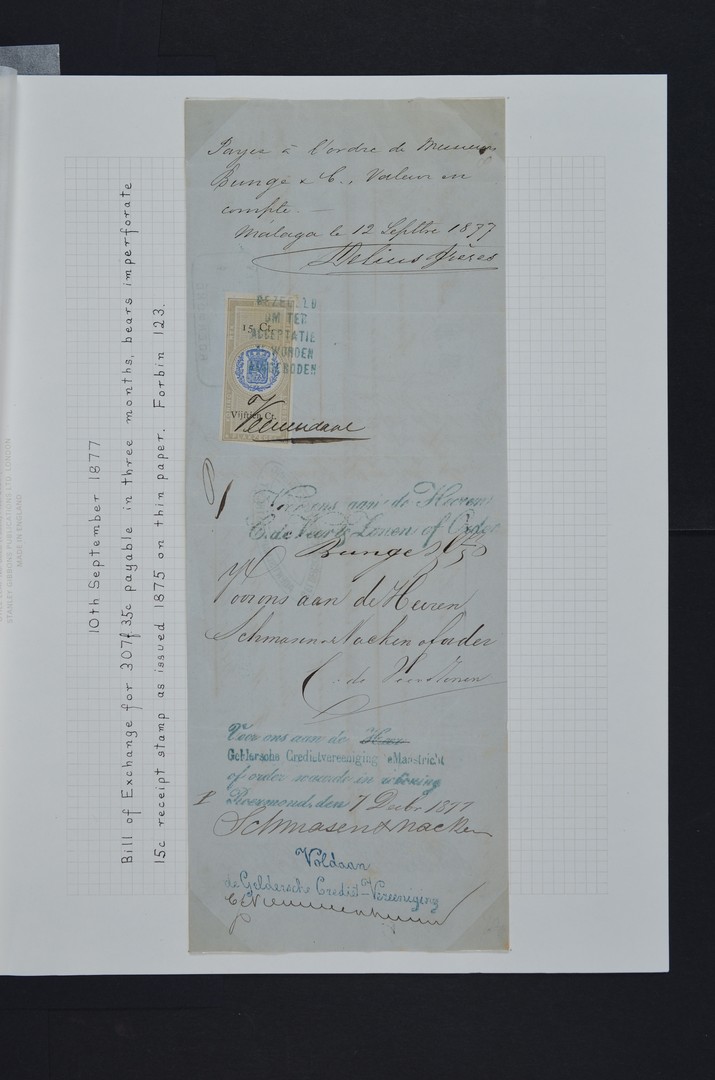 10th September 1877
Bill of Exchange for 307f 35c payable in three months, bears imperforate
15c receipt stamp as issued 1875 on thin paper. Forbin 123.
STANLEY GIBBONS PUBLICATIONS LTD. LONDON
MADE IN ENGLAND
Payez à l'ordre de Messieurs
Bunge & C., Valeur en
compte. —
Málaga le 12 Septtre 1877
Delius frères
GEZEGELD
OM TER
ACCEPTATIE
TE WORDEN
AANGEBODEN
15 Ct.
Vijftien Ct.
Veenendaal
Voor ons aan de Heeren
C. de Veer & Zonen of Order
Bunge & Co
Voor ons aan de Heeren
Schmasen & Nacken of order
C. de Veer & Zonen
Voor ons aan de Heer
Geldersche Credietvereeniging Maastricht
of order waarde in rekening
Roermond, den 7 Decbr 1877
Schmasen & Nacken
Voldaan
de Geldersche Crediet-Vereeniging